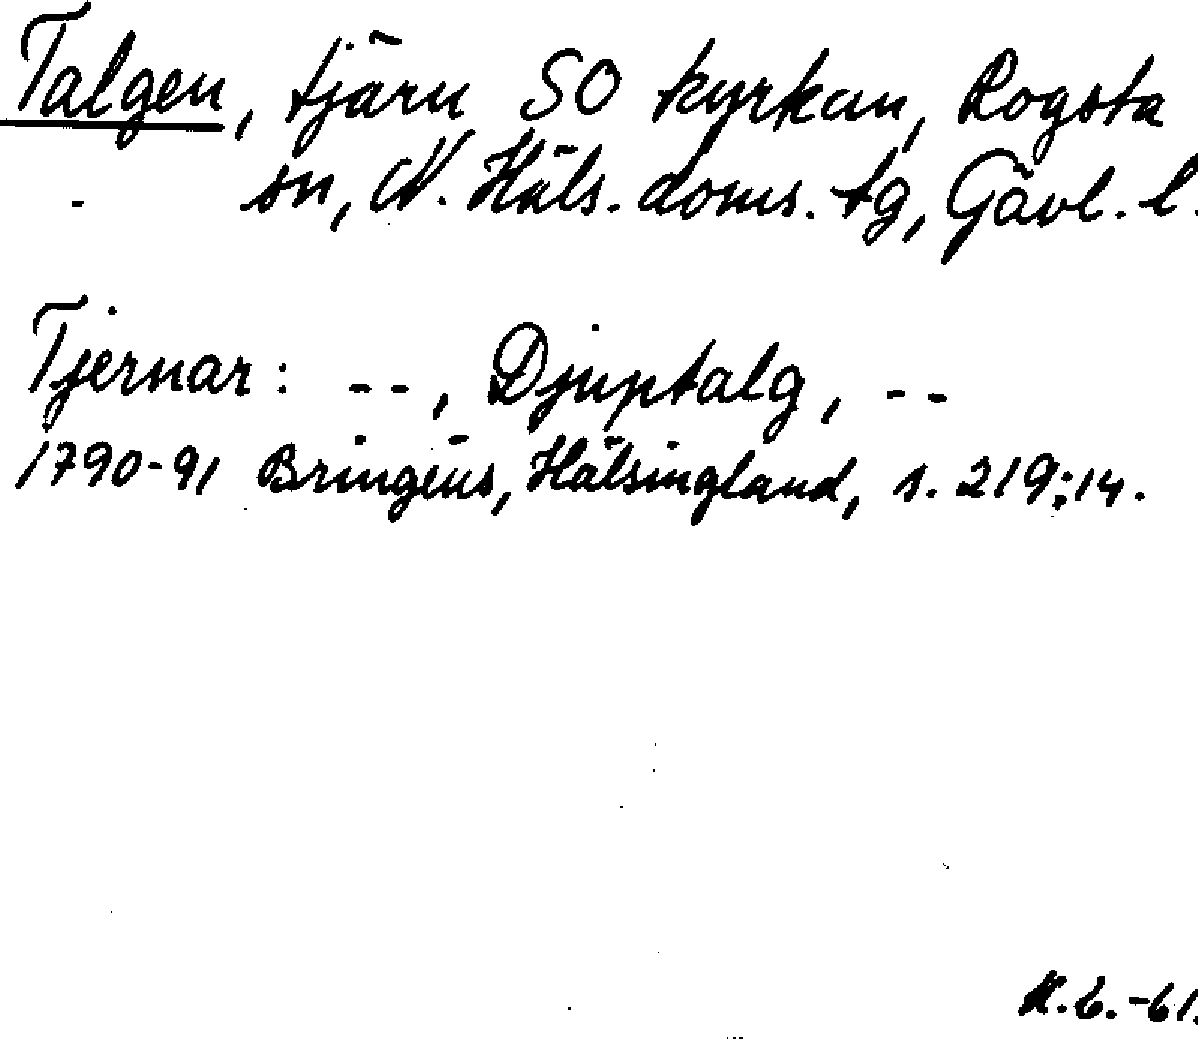 Talgen, tjärn SO kyrkan, Rogsta
sn, N. Häls. doms. tg, Gävl. l.
Tjernar: --, Djuptalg, --
1790-91 Bringéus, Hälsingland, s. 219:14.
-61.